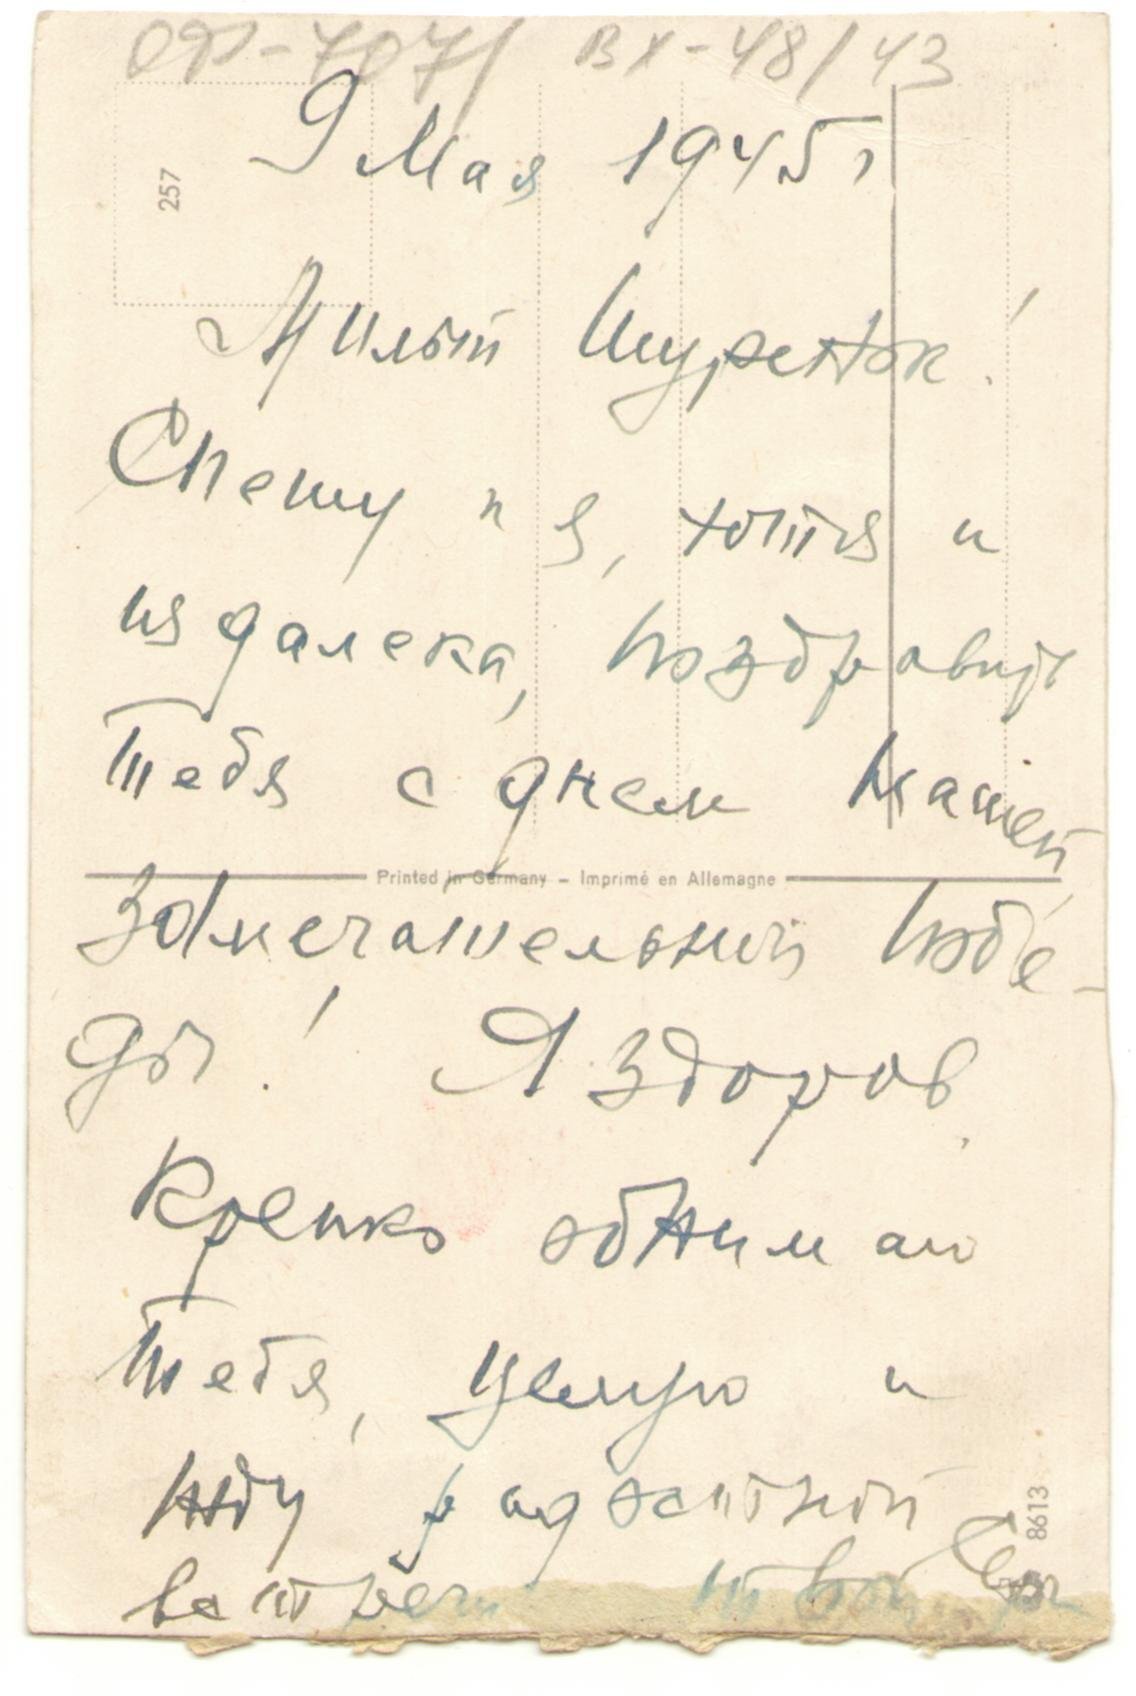 ОФ-7071 ВХ-48/43
9 Мая 1945 г
257
Милый Шуренок!
Спешу и я, хотя и
издалека, поздравить
тебя с днем нашей
Printed in Germany – Imprimé en Allemagne
замечательной побе-
ды! Я здоров.
Крепко обнимаю
тебя, целую и
жду радостной
8613
встречи твой